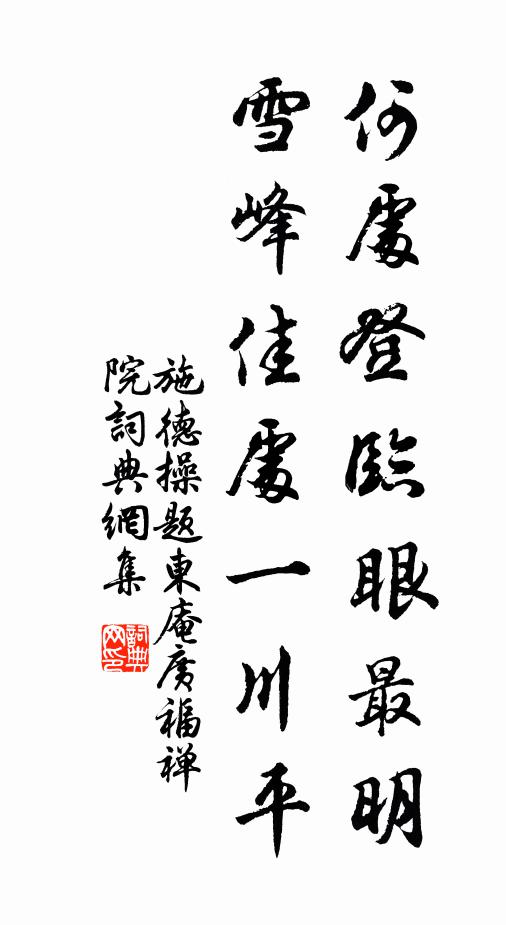 何處登臨眼最明
雪峰佳處一川平
施德操题東庵廣福禅
院詞典網集
詞典
网印